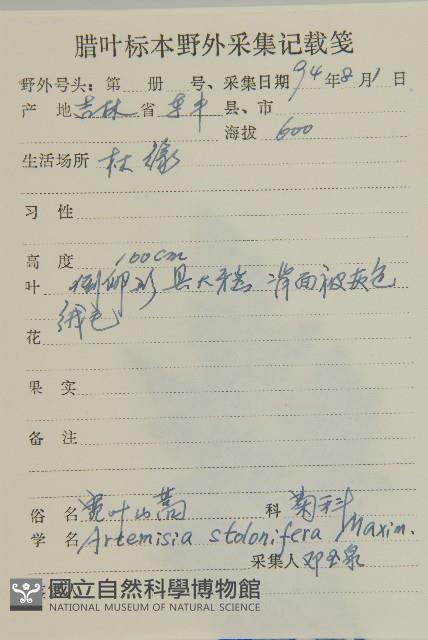 腊叶标本野外采集记载笺
野外号头：第 册 号、采集日期 94 年 8 月 1 日
产 地 吉林 省 县、市
海拔 600
生活场所 林缘
习 性
高 度 100cm
叶 倒卵形 具大牙齿 背面被灰色
绒毛
花
果 实
备 注
俗 名 宽叶山蒿 科 菊科
学 名 Artemisia stolonifera Maxim.
采集人 邓玉泉
國立自然科學博物館
NATIONAL MUSEUM OF NATURAL SCIENCE